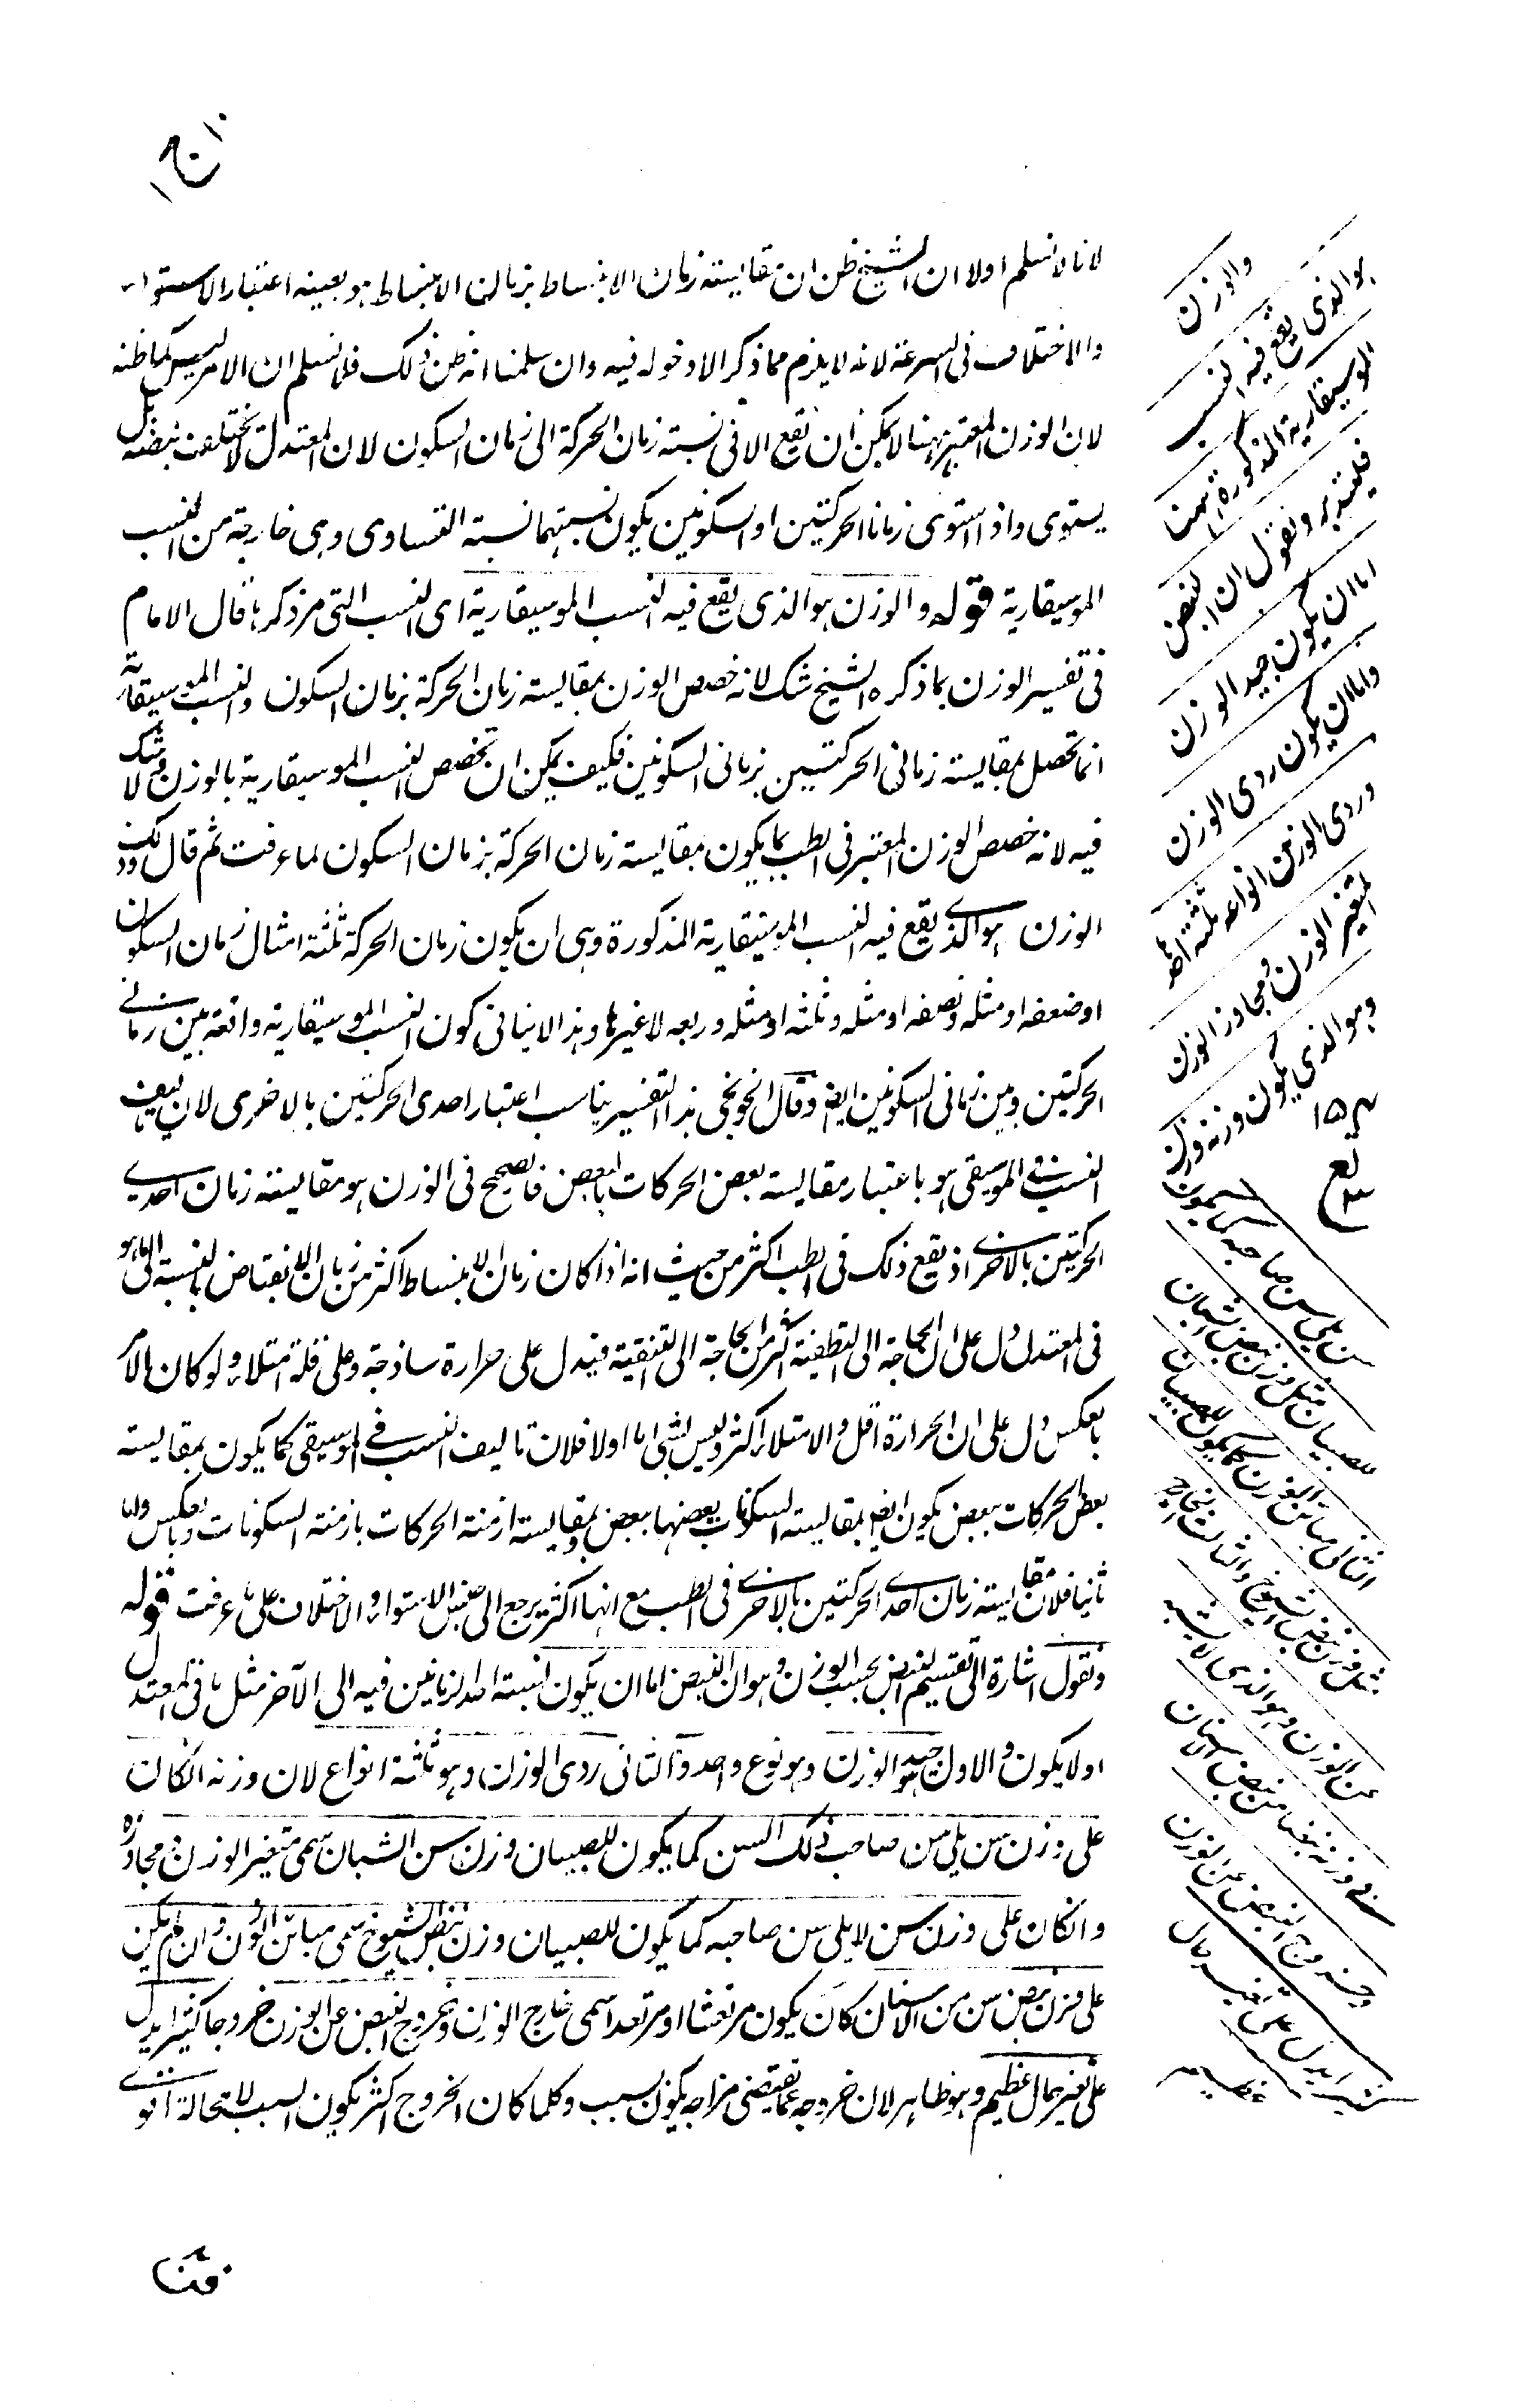 لانا لا نسلم اولا ان الشيخ ظن ان مقايسته زمان الانبساط بزمان الانبساط هو بعينه اعتبار الاستواء
والاختلاف فى السرعة لانه لا يلزم مما ذكر الا دخوله فيه وان سلمنا انه ظن ذلك فلا نسلم ان الامر ليس كما ظنه
لان الوزن المعتبر ههنا لا يمكن ان تقع الا فى نسبته زمان الحركة الى زمان السكون لان المعتدل لا يختلف نبضه بل
يستوى واذا استوى زمانا الحركتين او السكونين يكون نسبتهما نسبة التساوى وهى خارجة من النسب
الموسيقارية قوله والوزن هو الذى يقع فيه النسب الموسيقارية اى النسب التى مر ذكرها قال الامام
فى تفسير الوزن بما ذكره الشيخ شك لانه خصص الوزن بمقايسته زمان الحركة بزمان السكون والنسب الموسيقارية
انما تحصل بمقايسته زمانى الحركتين بزمانى السكونين فكيف يمكن ان تخصص النسب الموسيقارية بالوزن ولا شك
فيه لانه خصص الوزن المعتبر فى الطب بما يكون بمقايسته زمان الحركة بزمان السكون لما عرفت ثم قال وذلك
الوزن هو الذى يقع فيه النسب الموسيقارية المذكورة وهى ان يكون زمان الحركة ثلثة امثال زمان السكون
او ضعفه او مثله ونصفه او مثله وثلثه او مثله وربعه لا غيرها وهذا لا ينافى كون النسب الموسيقارية واقعة بين زمانى
الحركتين وبين زمانى السكونين ايضا وقال الخونجى هذا التفسير يناسب اعتبار احدى الحركتين بالاخرى لان تاليف
النسب فى الموسيقى هو باعتبار مقايسته بعض الحركات بالبعض فالصحيح فى الوزن هو مقايسته زمان احدى
الحركتين بالاخرى اذ يقع ذلك فى الطب اكثر من حيث انه اذا كان زمان الانبساط اكثر من زمان الانقباض بالنسبة الى ما هو
فى المعتدل دل على ان الحاجة الى التطفية اكثر من الحاجة الى التنقية فيدل على حرارة ساذجة وعلى قلة امتلاء ولو كان الامر
بالعكس دل على ان الحرارة اقل والامتلاء اكثر وليس بشى اما اولا فلان تاليف النسب فى الموسيقى كما يكون بمقايسته
بعض الحركات ببعض يكون ايضا بمقايسته السكونات بعضها ببعض وبمقايسته ازمنة الحركات بازمنة السكونات وبالعكس واما
ثانيا فلان مقايسته زمان احدى الحركتين بالاخرى فى الطب مع انها اكثر يرجع الى جنس الاستواء والاختلاف على ما عرفت قوله
ونقول اشارة الى تقسيم النبض بحسب الوزن وهو ان النبض اما ان يكون نسبة احد الزمانين فيه الى الآخر مثل ما فى المعتدل
اولا يكون والاول جيد الوزن وهو نوع واحد والثانى ردى الوزن وهو ثلثة انواع لان وزنه انكان
على وزن سن يلى سن صاحب ذلك السن كما يكون للصبيان وزن سن الشبان سمى متغير الوزن ومجاوزه
وانكان على وزن سن لا يلى سن صاحبه كما يكون للصبيان وزن نبض الشيوخ سمى مباين الوزن وان لم يكن
على وزن نبض سن من الاسنان كان يكون مرتعشا او مرتعدا سمى خارج الوزن وخروج النبض عن الوزن خروجا كثيرا يدل
على تغير حال عظيم وهو ظاهر لان خروجه عما يقتضى مزاجه يكون لسبب وكلما كان الخروج اكثر يكون السبب لا محالة اقوى
والوزن
هو الذى يقع فيه النسب
الموسيقارية المذكورة
فليتدبر ونقول ان النبض
اما ان يكون جيد الوزن
واما ان يكون ردى الوزن
وردى الوزن انواعه ثلثة احدها
المتغير الوزن ومجاوز الوزن
وهو الذى يكون وزنه وزن
سن يلى سن صاحبه كما يكون
للصبيان مثل وزن نبض الشبان
الثانى مباين الوزن كما يكون للصبيان
مثل وزن نبض الشيوخ والثالث الخارج
عن الوزن وهو الذى لا يشبه
فى وزنه نبضا من نبض الاسنان
وخروج النبض عن الوزن
كثيرا يدل على تغير حال
عظيم